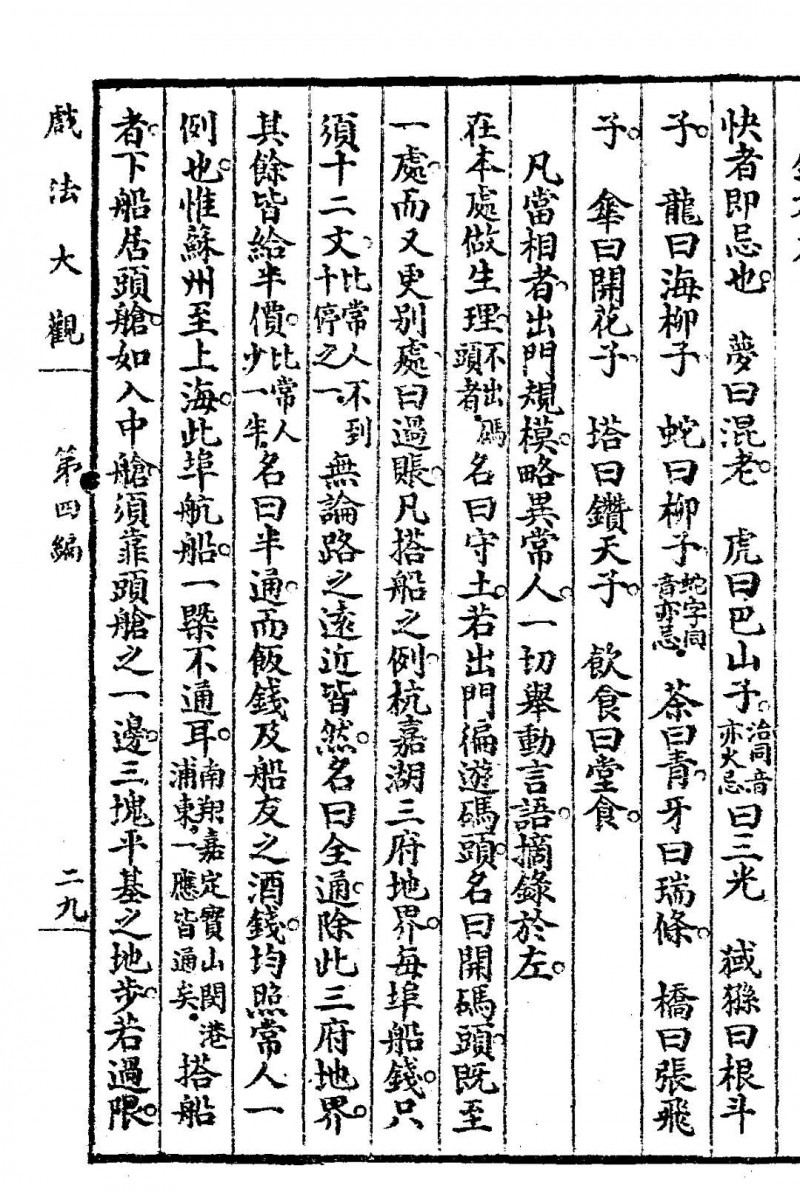 快者即忌也。　夢曰混老。　虎曰巴山子。治同音亦大忌曰三光　狨猻曰根斗
子。　龍曰海柳子　蛇曰柳子蛇字同音亦忌。　茶曰青。牙曰瑞條。　橋曰張飛
子。　傘曰開花子。　塔曰鑽天子。　飲食曰堂食。
凡當相者。出門規模。略異常人。一切舉動言語。摘錄於左。
在本處做生理。不出碼頭者。名曰守土。若出門徧遊碼頭。名曰開碼頭。既至
一處。而又更別處。曰過賬。凡搭船之例。杭嘉湖三府地界。每埠船錢。只
須十二文。比常人不到十停之一。無論路之遠近皆然。名曰全通。除此三府地界。
其餘皆給半價。比常人少一半。名曰半通。而飯錢及船友之酒錢。均照常人一
例也。惟蘇州至上海。此埠航船。一槩不通耳。南翔嘉定寶山閔港浦東。一應皆通矣。搭船
者。下船居頭艙。如入中艙。須靠頭艙之一邊。三塊平基之地步。若過限。
戲法大觀　第四編　二九